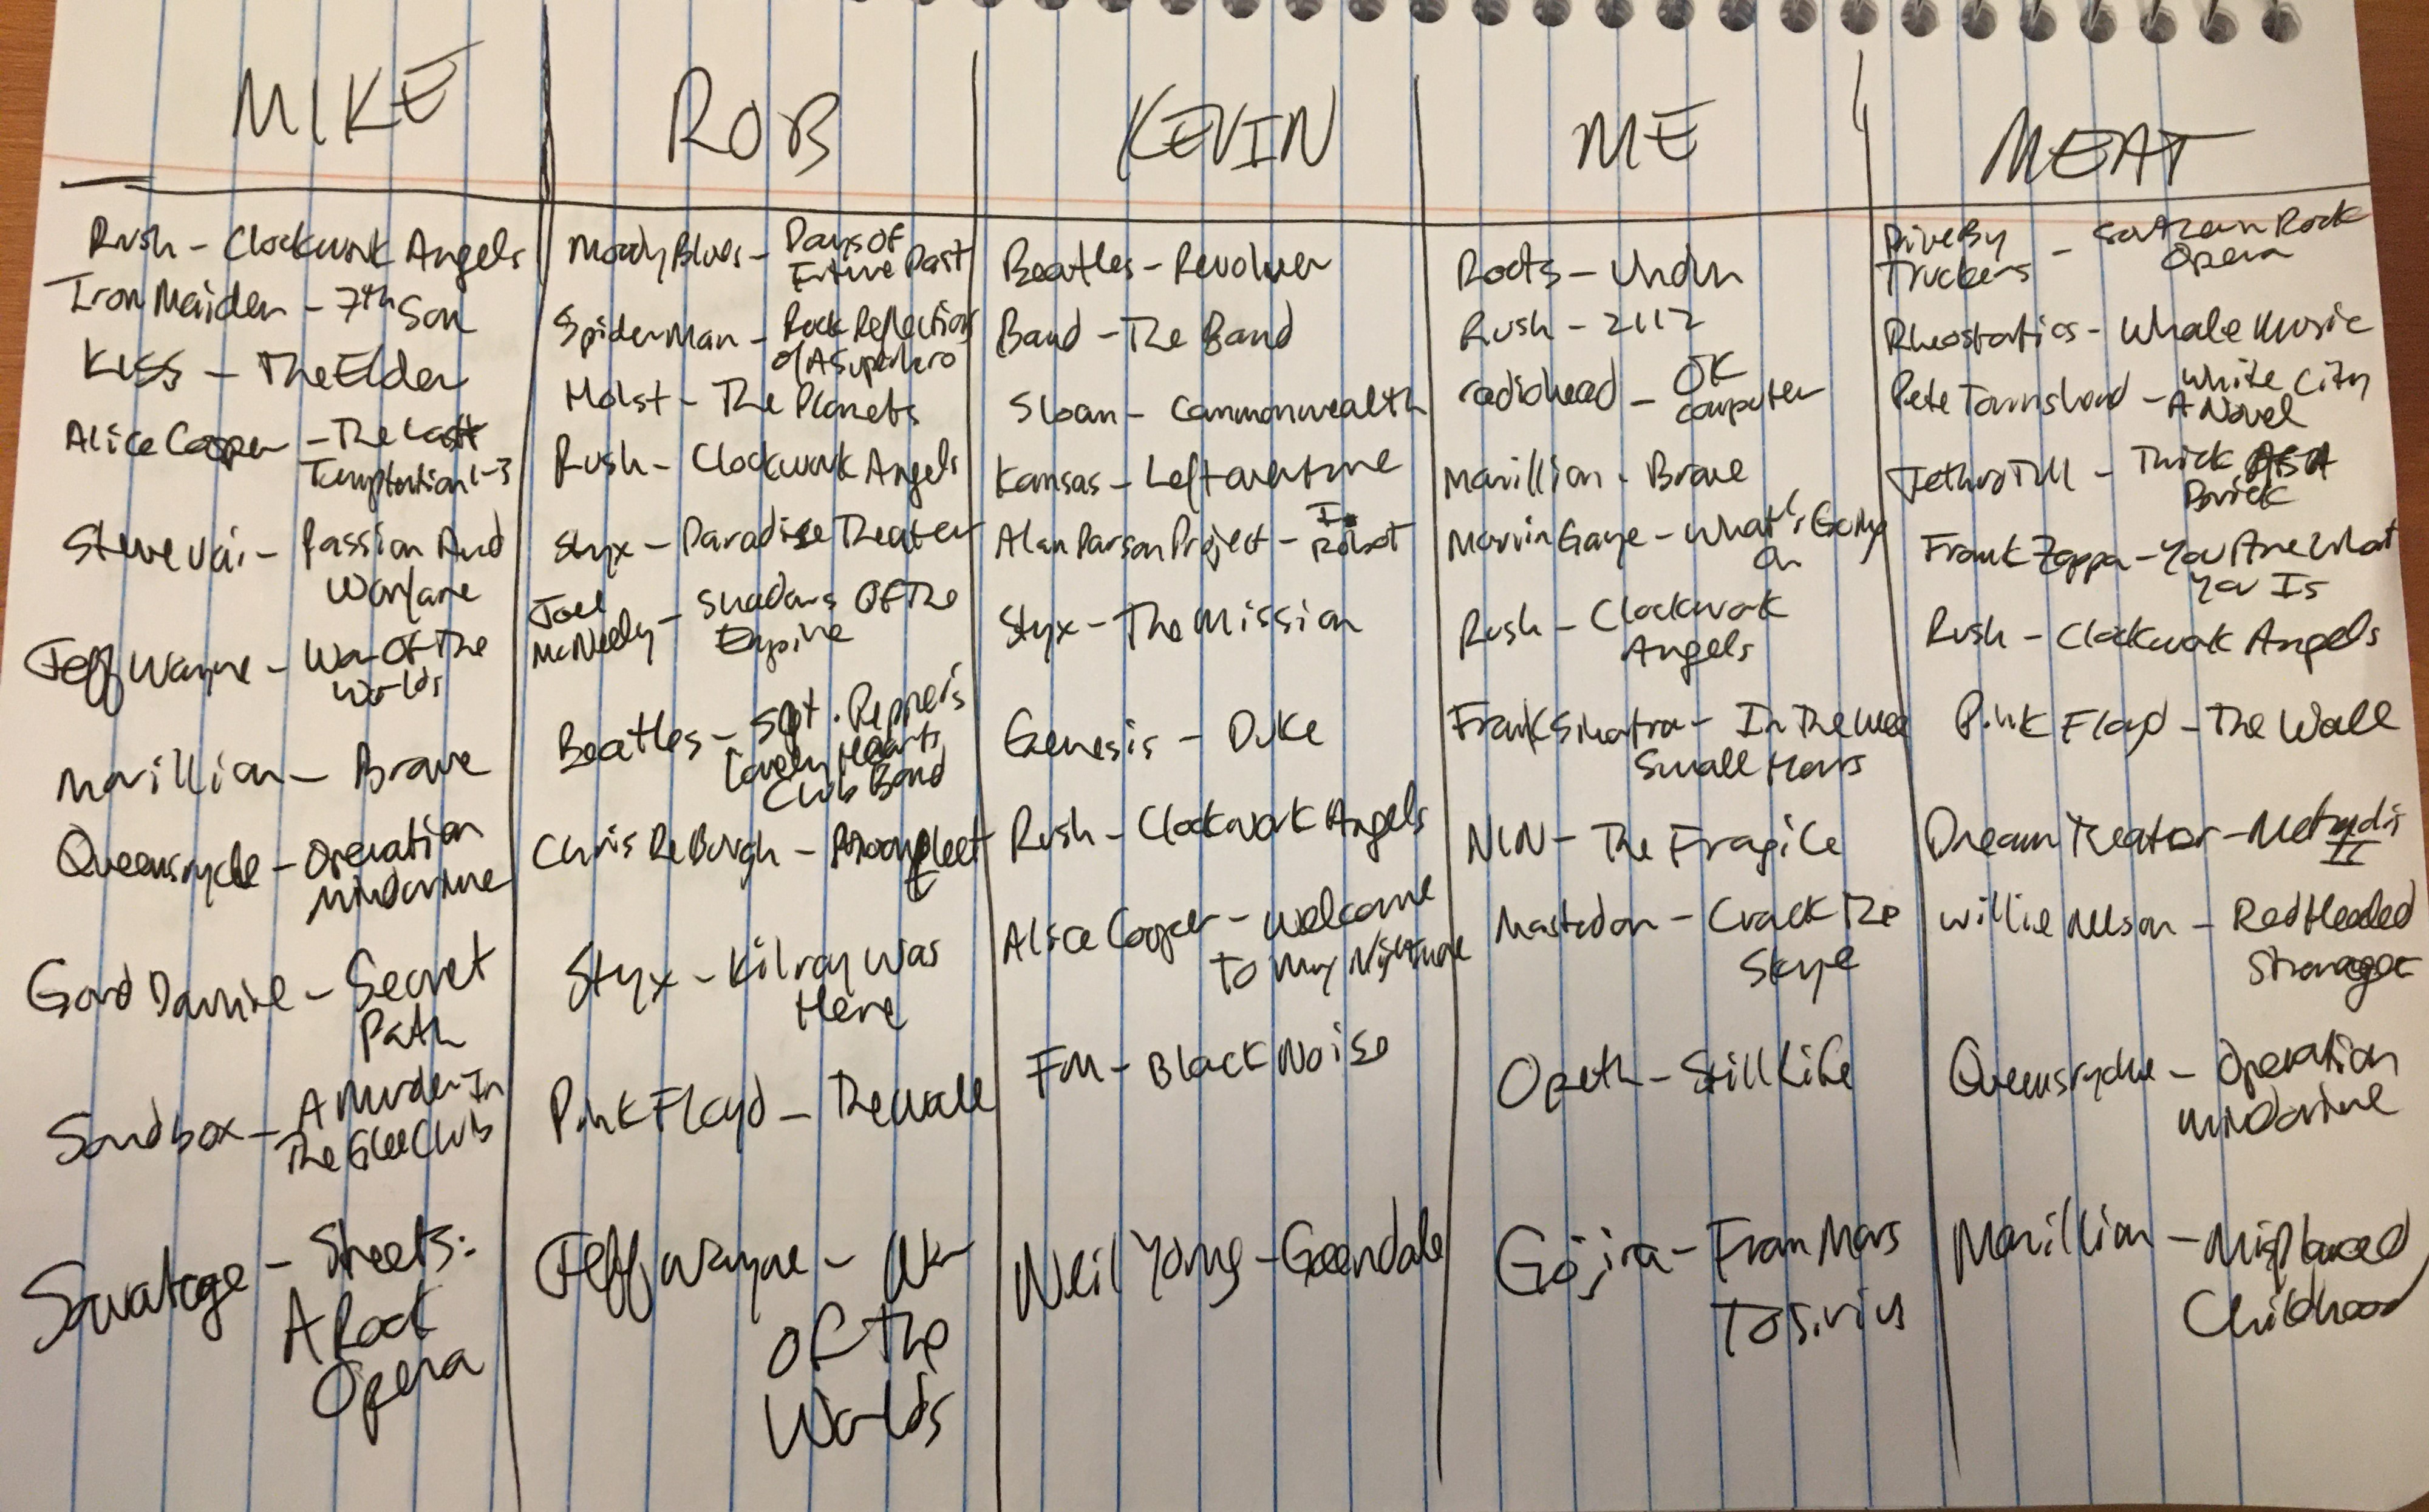 MIKE
Rush - Clockwork Angels
Iron Maiden - 7th Son
KISS - The Elder
Alice Cooper - The Last
Temptation 1-3
Steve Vai - Passion And
Warfare
Jeff Wayne - War Of The
Worlds
Marillion - Brave
Queensryche - Operation
Mindcrime
Gord Downie - Secret
Path
Sandbox - A Murder In
The Glee Club
Savatage - Streets:
A Rock
Opera
ROB
Moody Blues - Days Of
Future Past
Spiderman - Rock Reflections
Of A Superhero
Holst - The Planets
Rush - Clockwork Angels
Styx - Paradise Theater
Joel
McNeely - Shadows Of The
Empire
Beatles - Sgt. Pepper's
Lonely Hearts
Club Band
Chris DeBurgh -
Styx - Kilroy Was
Here
Pink Floyd - The Wall
Jeff Wayne - War
Of The
Worlds
KEVIN
Beatles - Revolver
Band - The Band
Sloan - Commonwealth
Kansas - Leftoverture
Alan Parson Project - I
Robot
Styx - The Mission
Genesis - Duke
Rush - Clockwork Angels
Alice Cooper - Welcome
To My Nightmare
FM - Black Noise
Neil Young - Greendale
ME
Roots - Undun
Rush - 2112
radiohead - OK
computer
Marillion - Brave
Marvin Gaye - What's Going
On
Rush - Clockwork
Angels
Frank Sinatra - In The Wee
Small Hours
NIN - The Fragile
Mastodon - Crack The
Skye
Opeth - Still Life
Gojira - From Mars
To Sirius
MEAT
Drive By
Truckers - Southern Rock
Opera
Rheostatics - Whale Music
Pete Townshend - White City
A Novel
Jethro Tull - Thick As A
Brick
Frank Zappa - You Are What
You Is
Rush - Clockwork Angels
Pink Floyd - The Wall
Dream Theater - Metropolis
II
Willie Nelson - Red Headed
Stranger
Queensryche - Operation
Mindcrime
Marillion - Misplaced
Childhood